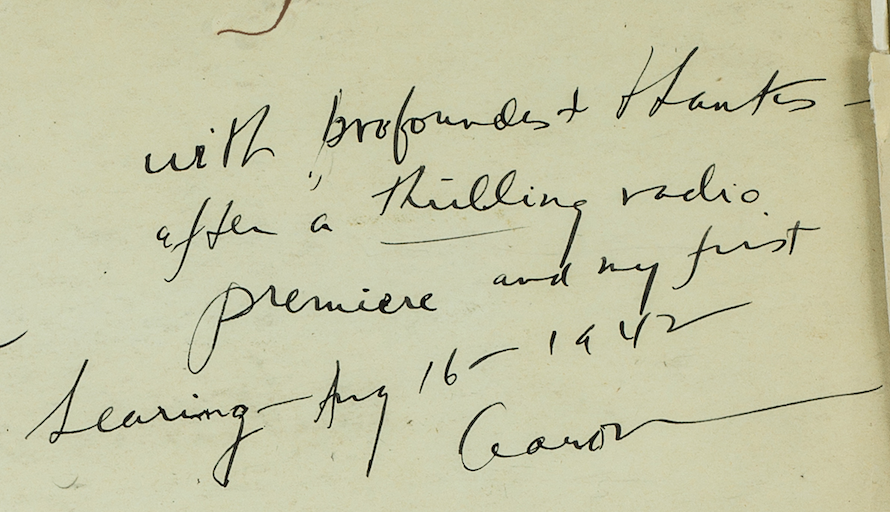 with profoundest thanks -
after a thrilling radio
premiere and my first
hearing - Aug 16 - 1942
Aaron